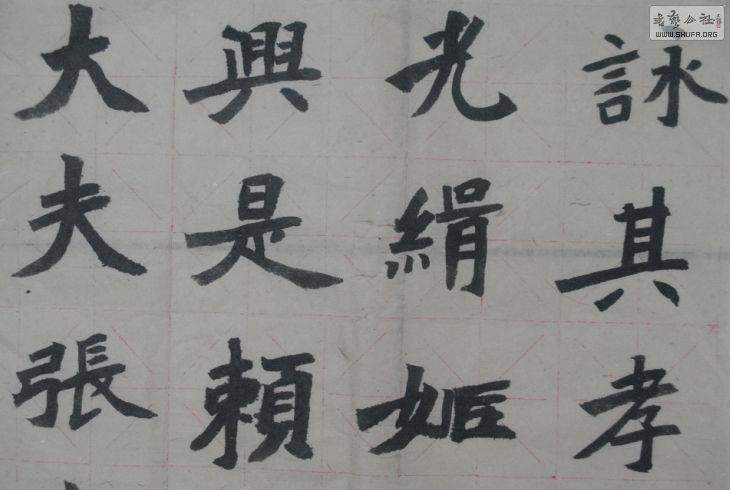 詠其孝
光絹姬
興是賴
大夫張
書藝公社
WWW.SHUFA.ORG